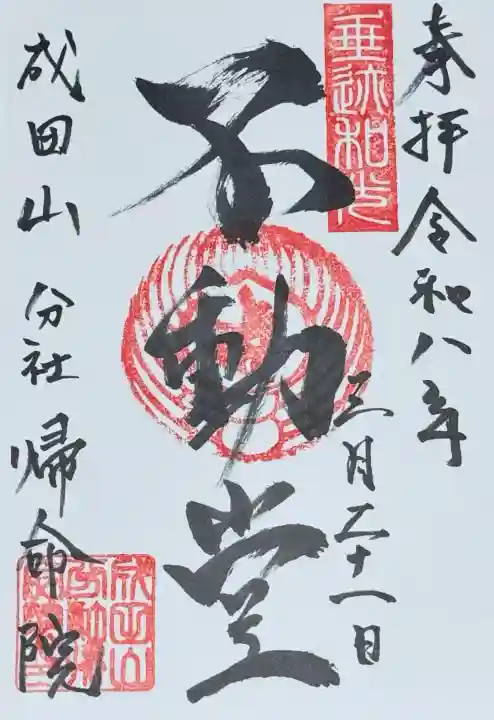 奉拝 令和八年
三月二十一日
垂迹和光
不動堂
成田山 分社 帰命院